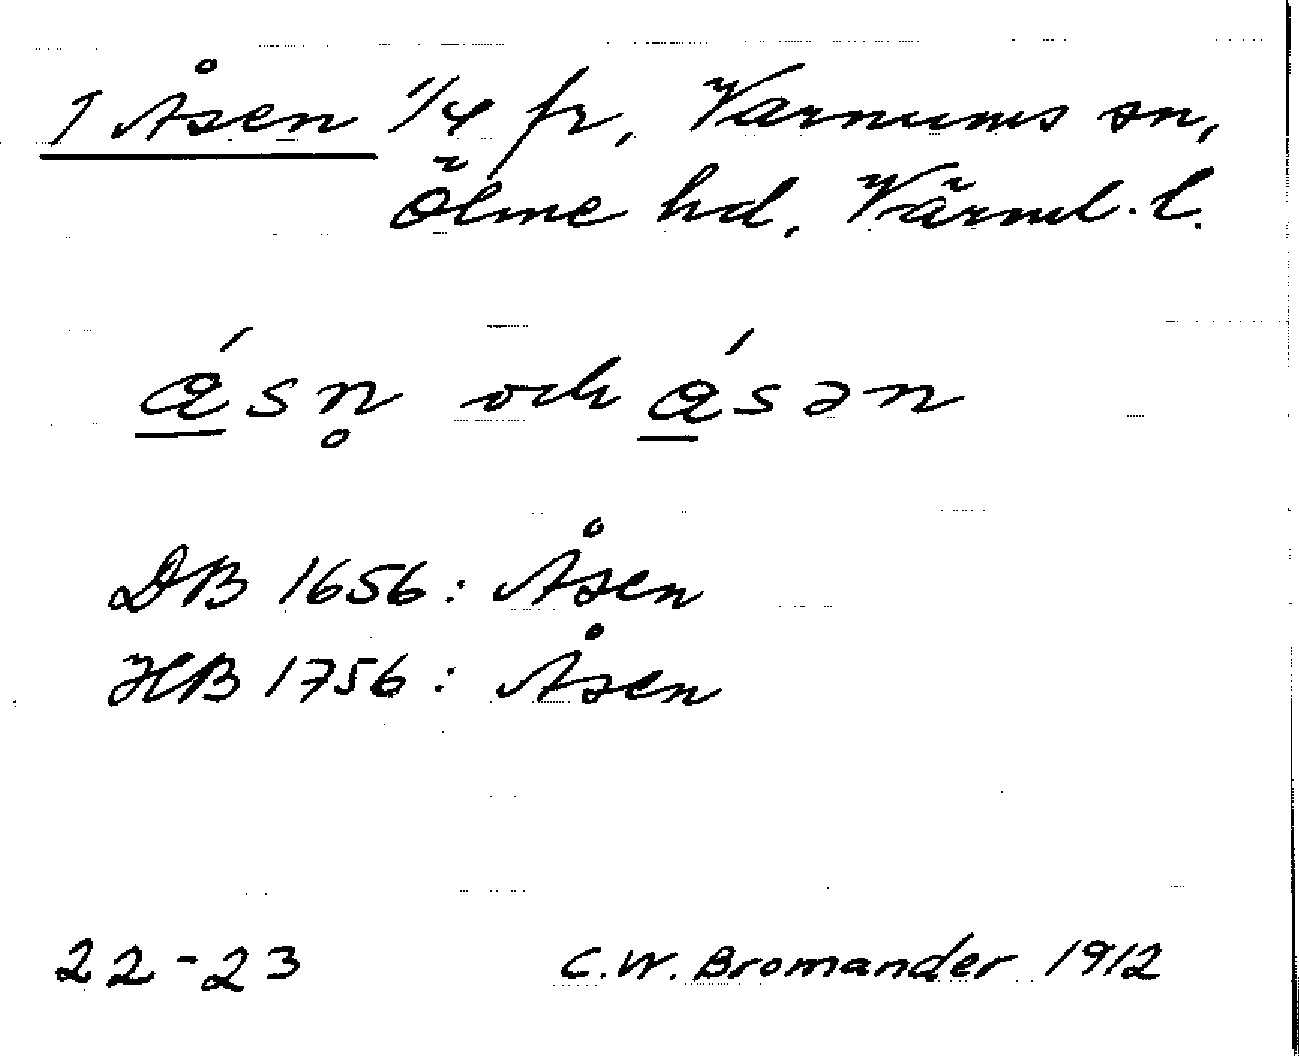 1 Åsen 1/4 fr, Varnums sn,
Ölme hd, Värml. l.
ǻsn̥ och ǻsən
DB 1656: Åsen
HB 1756: Åsen
22-23 C.W. Bromander 1912